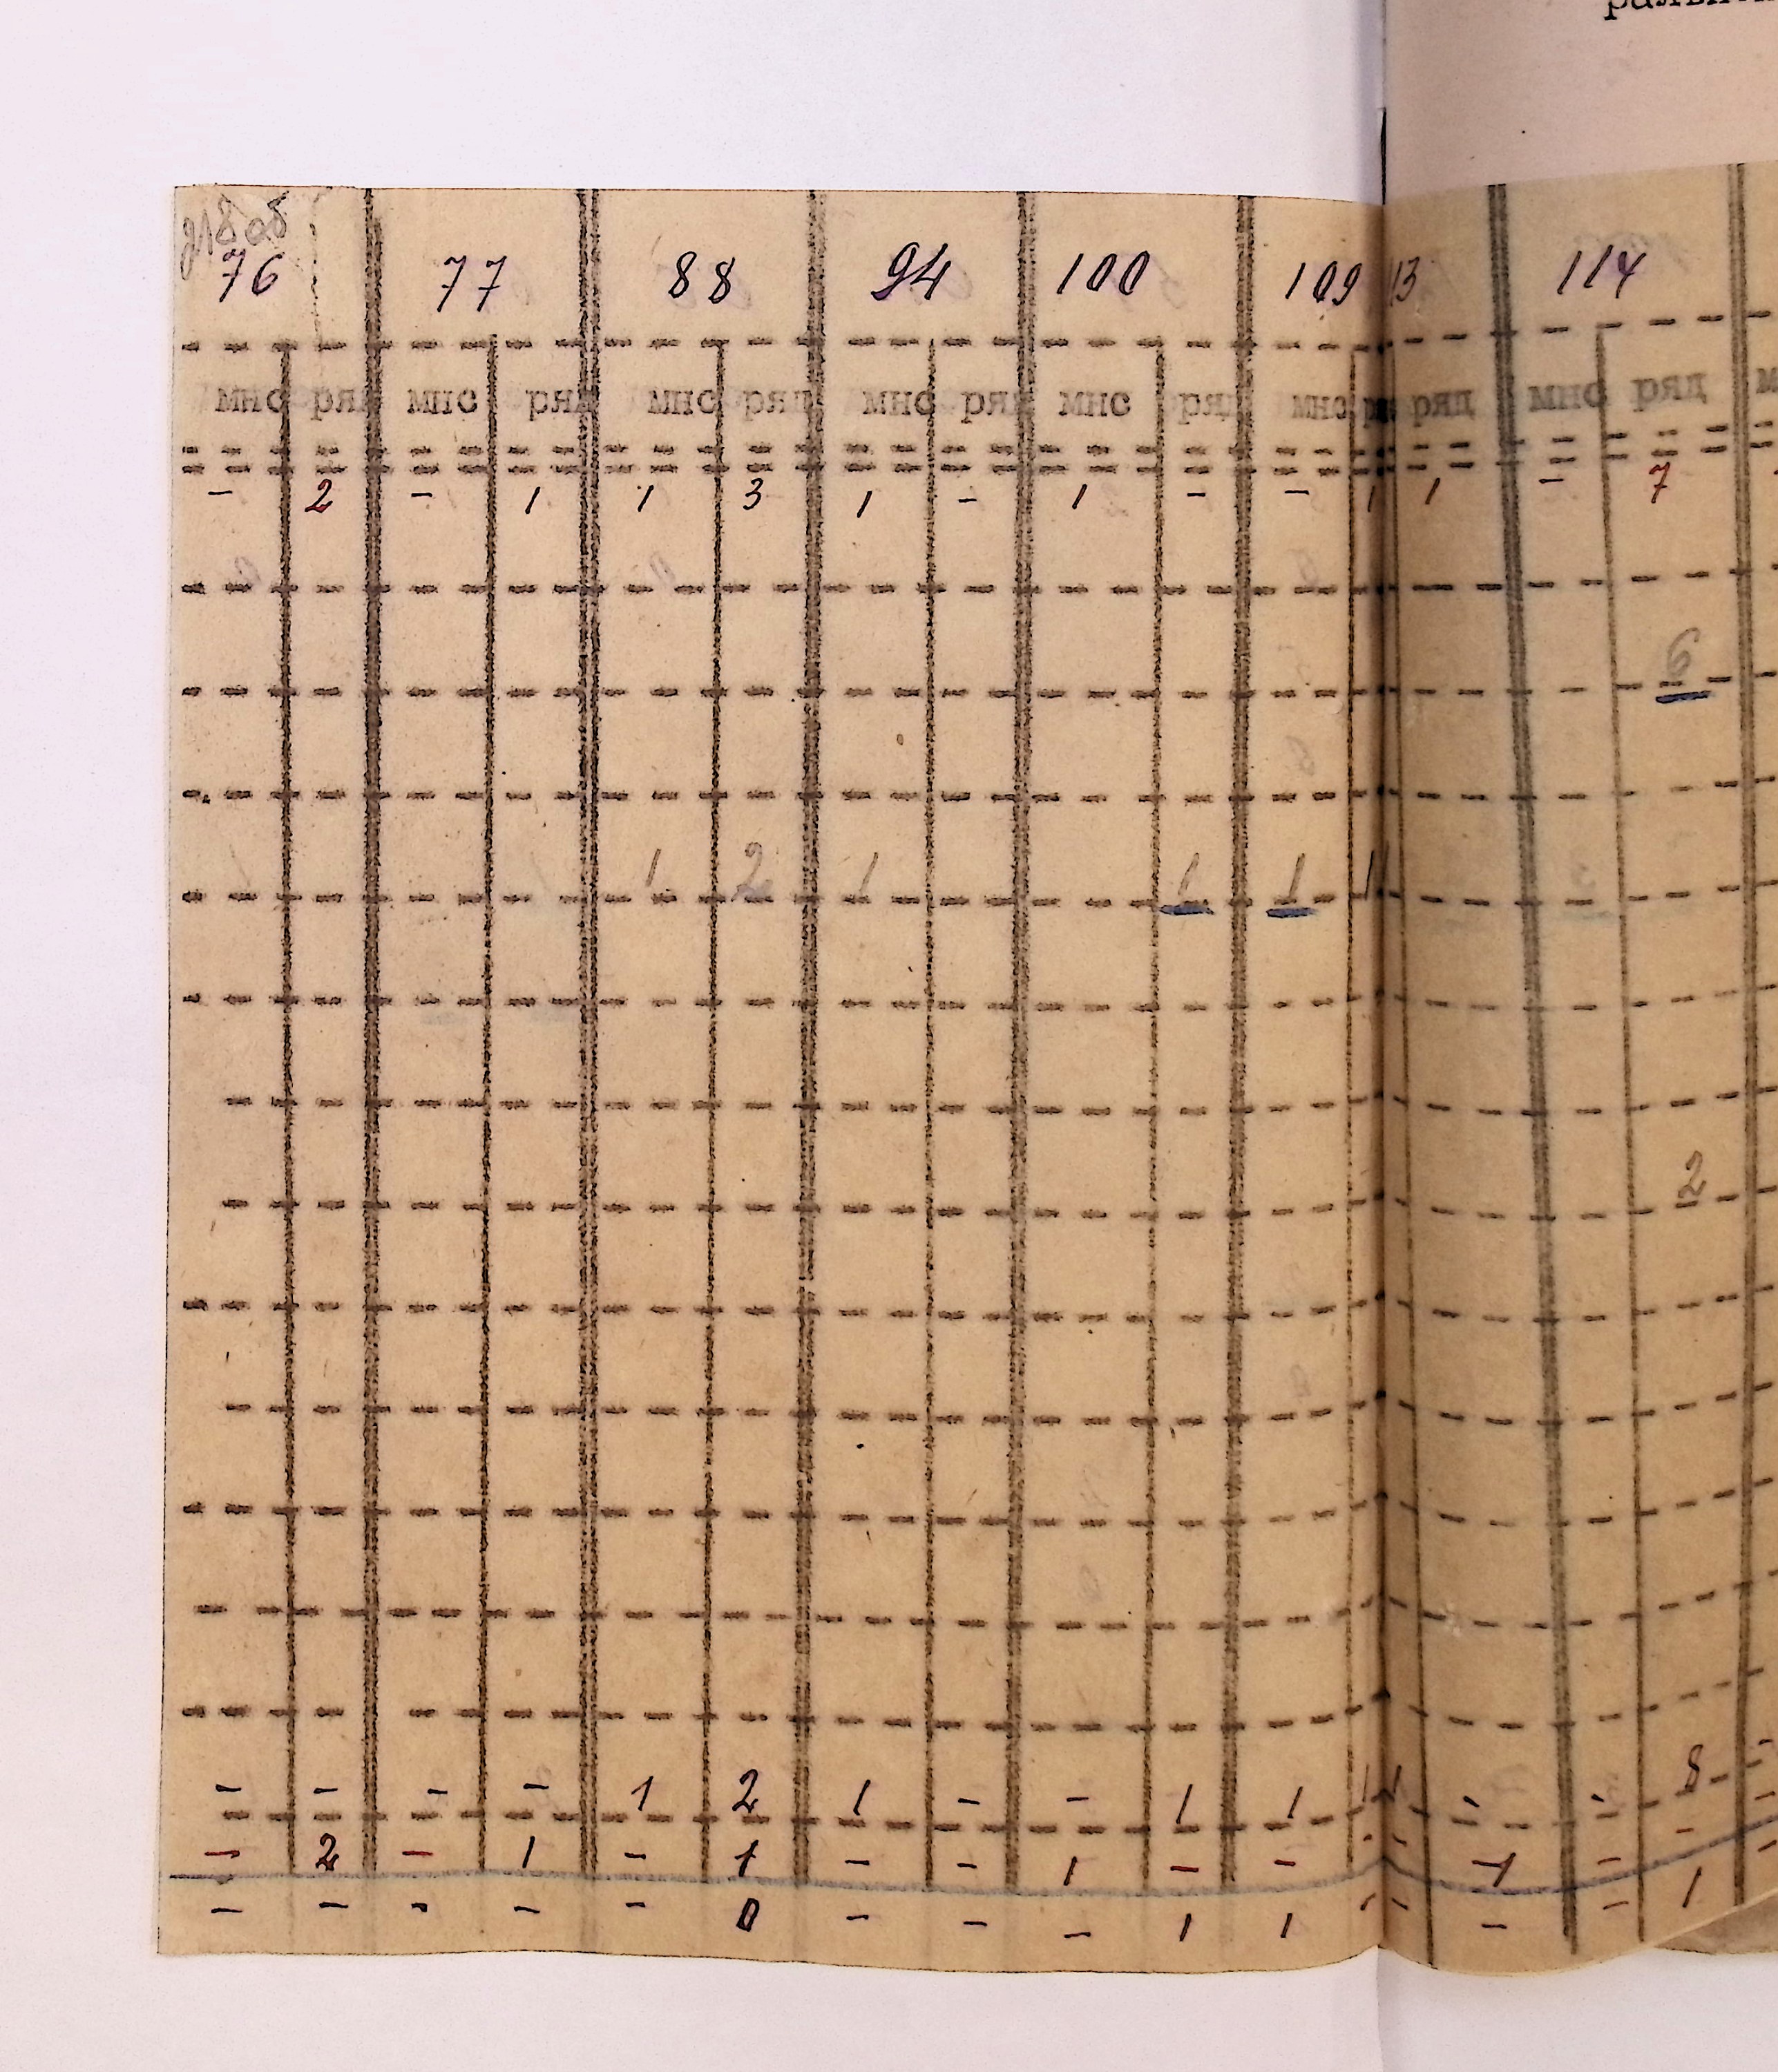 76 77 88 94 100 109 13 114
мнс ряд мнс ряд мнс ряд мнс ряд мнс ряд мнс ряд мнс ряд
- 2 - 1 1 3 1 - 1 - - 1 1 - 7
6
1 2 1 1 1 1
2
- - - - 1 2 1 - - 1 1 - - 8
- 2 - 1 - 1 - - 1 - - - 1 - -
- - - - - 0 - - - 1 1 - - - - 1